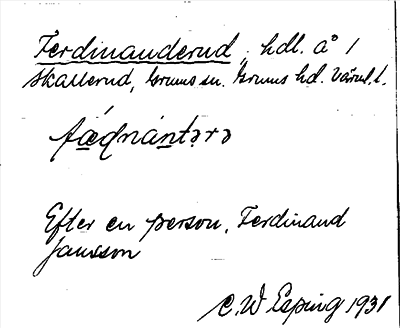 Ferdinanderud, hdl. å 1
Skallerud, Grums sn. Grums hd. Värml. l.
fǽdnàntərə
Efter en person, Ferdinand
Jansson
C. W Esping 1931